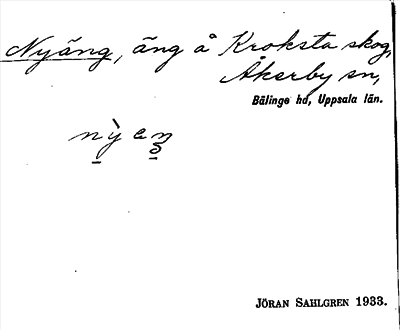 Nyäng, äng å Kroksta skog,
Åkerby sn,
Bälinge hd, Uppsala län.
JÖRAN SAHLGREN 1933.